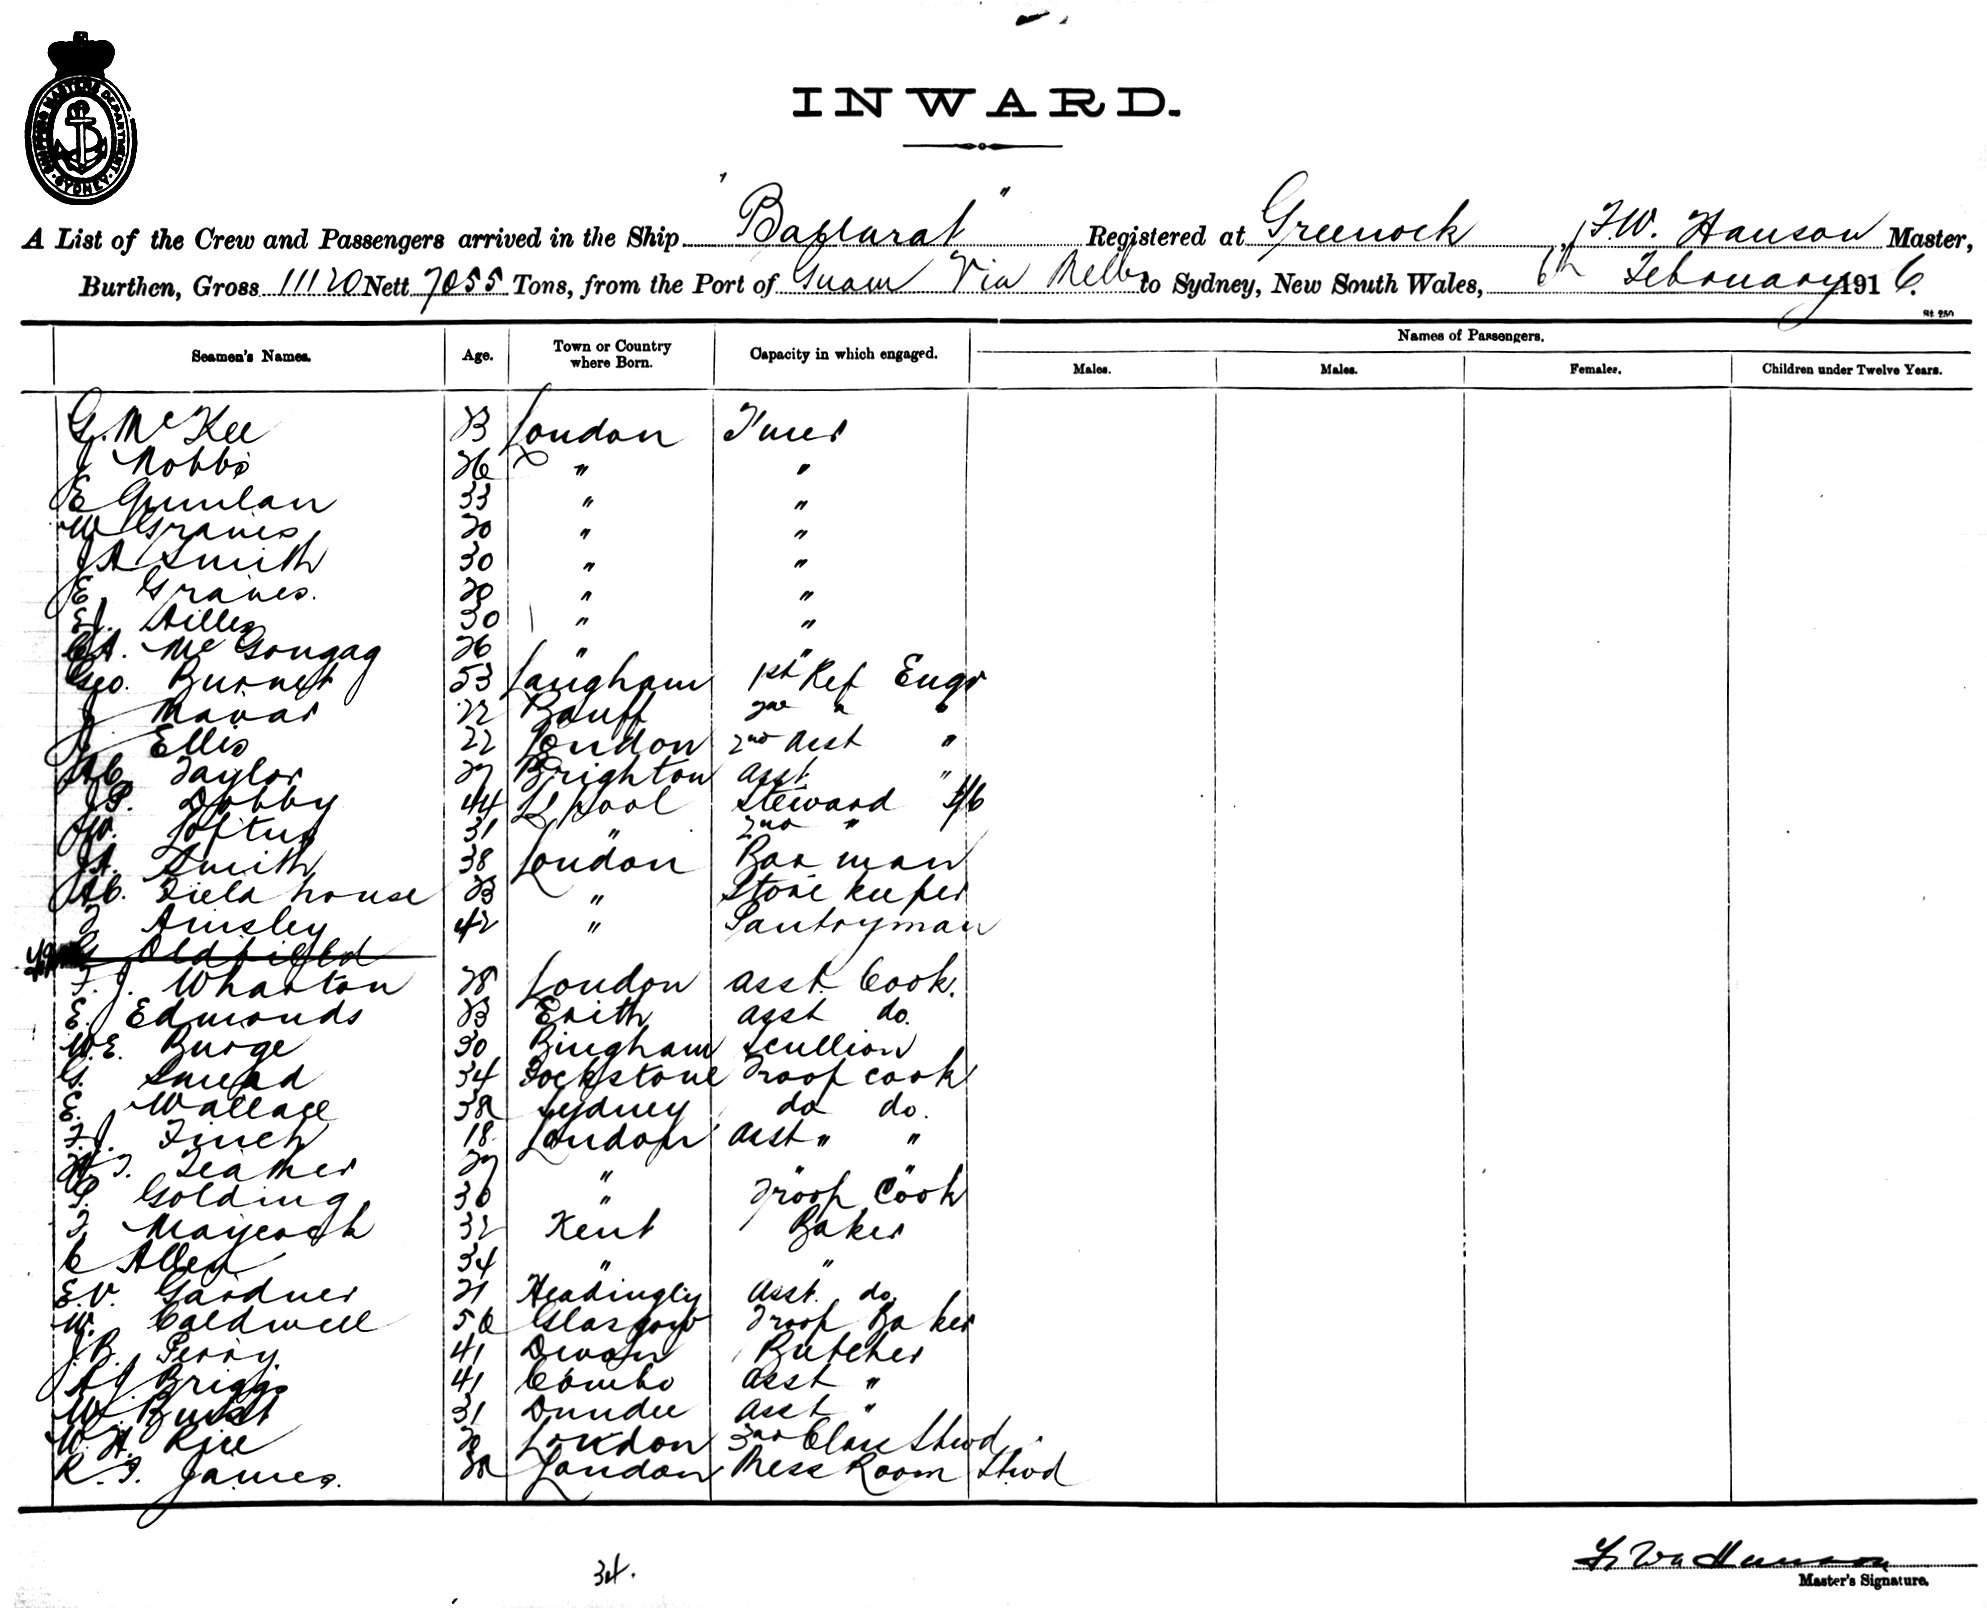 SHIPPING MASTERS DEPARTMENT SYDNEY
INWARD.
A List of the Crew and Passengers arrived in the Ship "Ballarat" Registered at Greenock, F.W. Hanson Master,
Burthen, Gross 11120 Nett 7055 Tons, from the Port of Guam Via Melb to Sydney, New South Wales, 6th February 1916.
Seamen's Names. Age. Town or Country where Born. Capacity in which engaged. Names of Passengers.
Males. Males. Females. Children under Twelve Years.
G. McKee 23 London
J Nobbs 26 " "
E Quinlan 33 " "
W Graves 20 " "
JA Smith 30 " "
E Graves. 20 " "
EJ. 30 " "
CA. Mc 26 " "
Geo. Burnet 53 Langham 1st Ref Engr
J Mavar 22 Banff 2nd " "
J Ellis 22 London 2nd Asst "
AC. Taylor 27 Brighton Asst "
JP. Dobby 44 L'pool Steward
JW. Loftus 31 " 2nd "
JA. Smith 38 London Bar man
AC. Field house 23 " Store keeper
F Ainsley 42 " Pantryman
G Oldfield
F. J. Wharton 28 London Asst. Cook.
E. Edmonds 23 Erith Asst do.
W.E. Burge 30 Bingham Scullion
G. Smead 34 Troop Cook
E. Wallace 38 Sydney do do.
F.J. Finch 18 London Asst " "
F. Feather 27 " " "
P. Golding 30 " Troop Cook
F Maycock 32 Kent Baker
C Allen 34 " "
E.V. Gardner 21 Headingley Asst. do
W. Caldwell 56 Glasgow Troop Baker
J.B. Perry. 41 Devon Butcher
AJ Briggs 41 Asst "
W. 31 Dundee Asst "
W. H. Rice 20 London 3rd Class Stwd.
R. F. James. London Mess Room Stwd
34.
F. W. Hanson
Master's Signature.